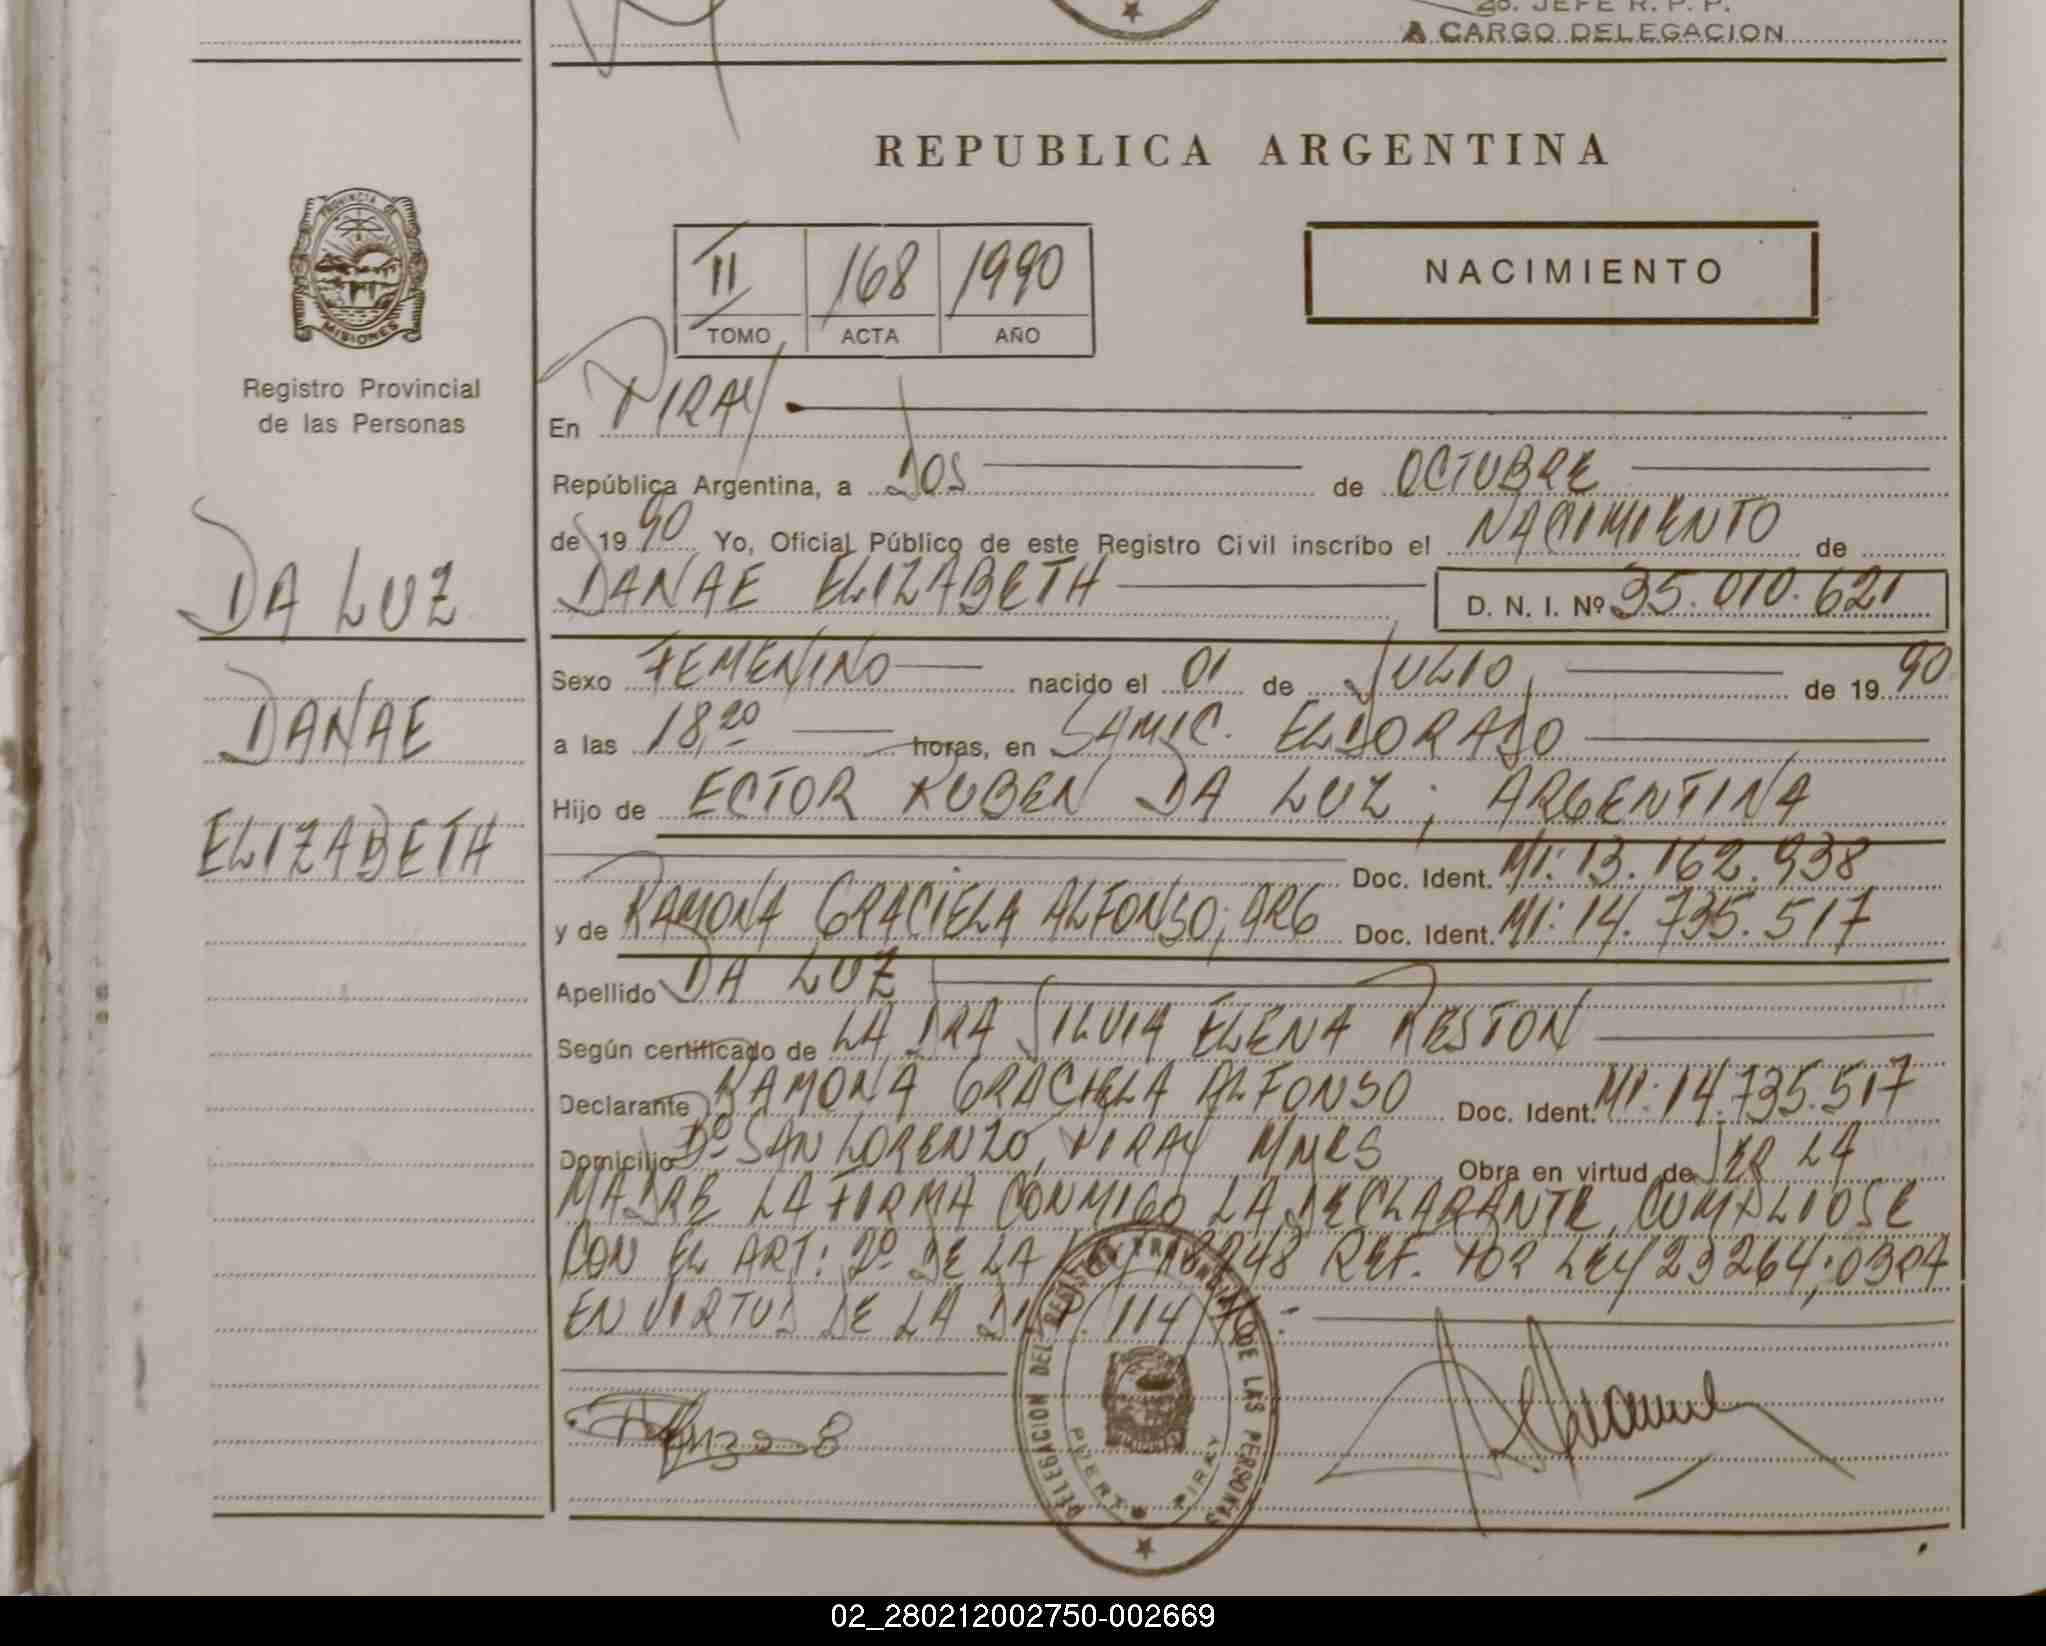 2o. JEFE R. P. P.
A CARGO DELEGACION
REPUBLICA ARGENTINA
PROVINCIA DE
MISIONES
Registro Provincial
de las Personas
II 168 1990
TOMO ACTA AÑO
NACIMIENTO
En PIRAY
República Argentina, a DOS de OCTUBRE
de 1990 Yo, Oficial Público de este Registro Civil inscribo el NACIMIENTO de
DANAE ELIZABETH D. N. I. Nº 35.010.621
DA LUZ
DANAE
ELIZABETH
Sexo FEMENINO nacido el 01 de JULIO de 1990
a las 18,20 horas, en SAMIC. ELDORADO
Hijo de ECTOR RUBEN DA LUZ; ARGENTINA
Doc. Ident. MI: 13.162.938
y de RAMONA GRACIELA ALFONSO; ARG Doc. Ident. MI: 14.735.517
Apellido DA LUZ
Según certificado de LA DRA SILVIA ELENA RESTON
Declarante RAMONA GRACIELA ALFONSO Doc. Ident. MI: 14.735.517
Domicilio Bº SAN LORENZO, PIRAY MNES Obra en virtud de SER LA
MADRE LA FIRMA CONMIGO LA DECLARANTE, CUMPLIOSE
CON EL ART: 2º DE LA LEY 18248 REF. POR LEY 23264;
EN VIRTUD DE LA DISP. 114/
DELEGACION DEL REGISTRO PROVINCIAL DE LAS PERSONAS
PUERTO PIRAY
02_280212002750-002669